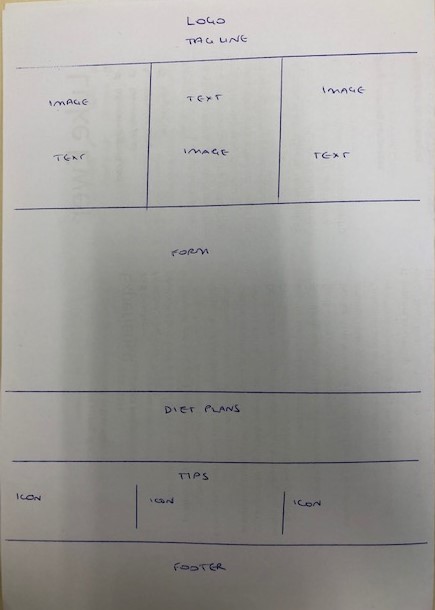 LOGO
TAG LINE
IMAGE TEXT IMAGE
TEXT IMAGE TEXT
FORM
DIET PLANS
TIPS
ICON ICON ICON
FOOTER